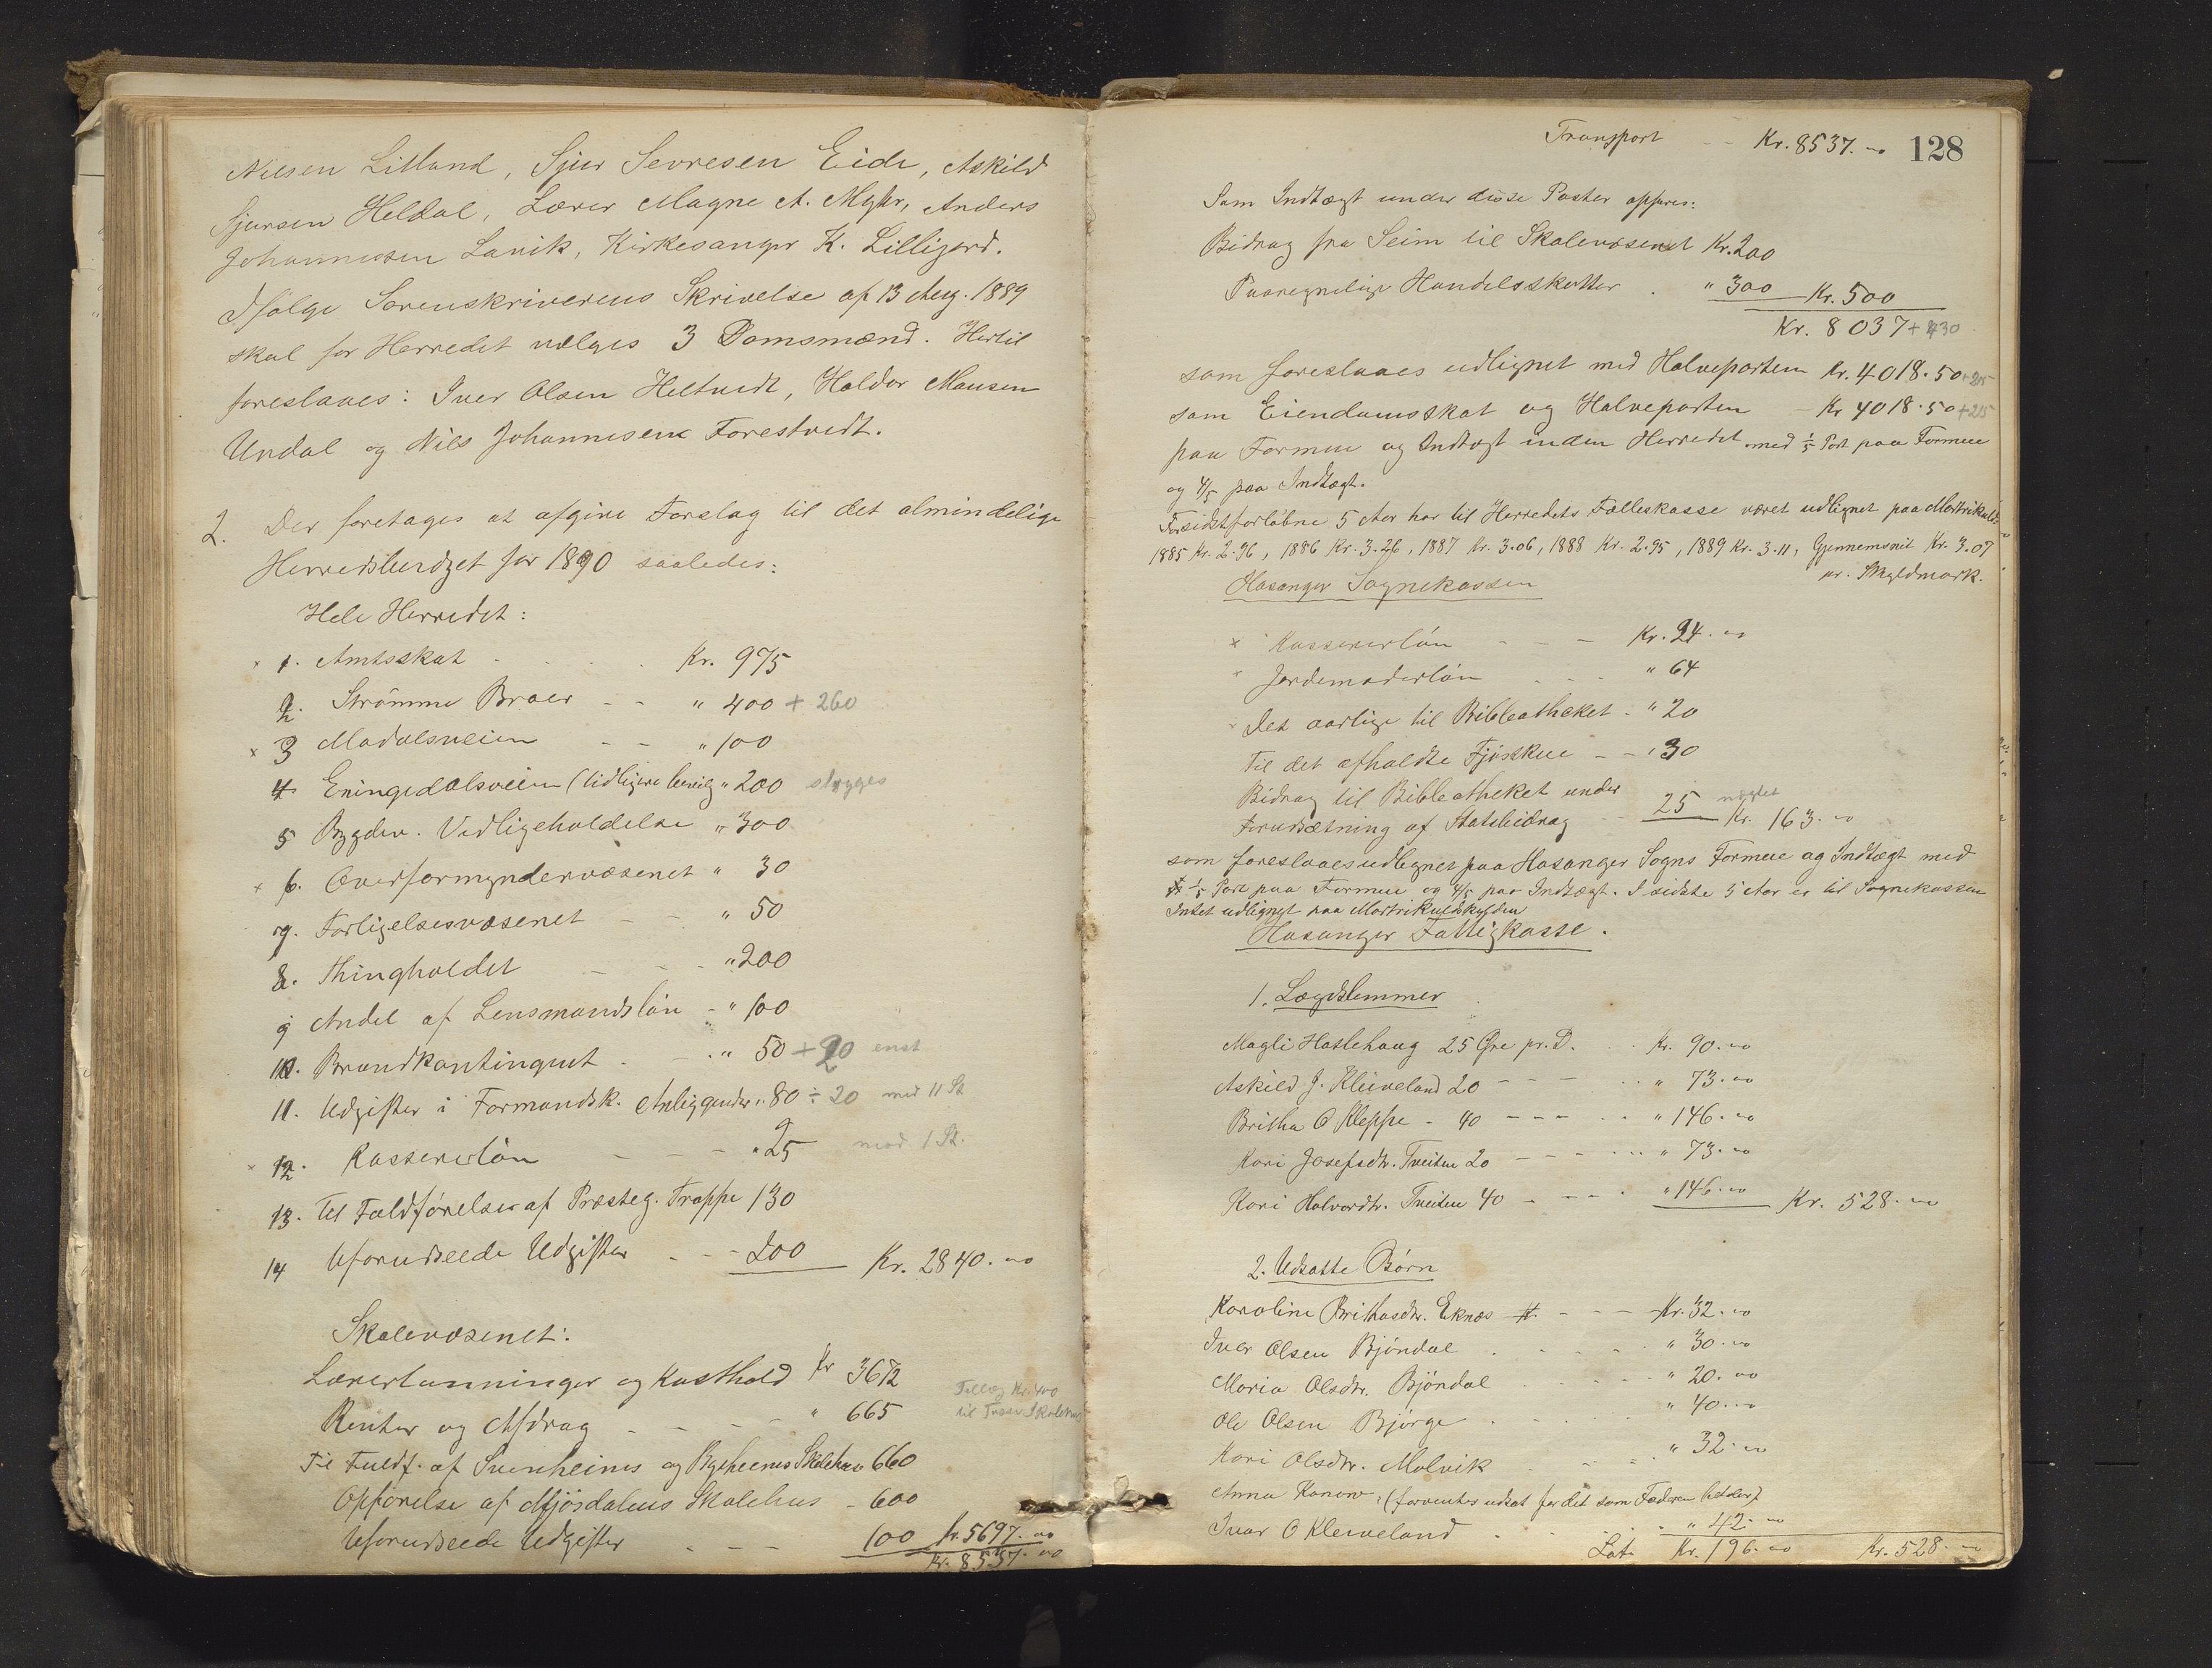 Nilsen Litland, Sjur Sevresen Eide, Askild
Sjursen Heldal, Lærer Magne A. Myhr, Anders
Johannessen Lavik, Kirkesanger K. Lillejord.
Ifølge Sorenskriverens Skrivelse af 13 Aug. 1889
skal for Herredet vælges 3 Domsmænd. Hertil
foreslaaes: Iver Olsen Heltvedt, Haldor Monsen
Undal og Nils Johannesen Forestvedt.
2. Der foretages at afgive Forslag til det almindelige
Herredsbudget for 1890 saaledes:
Hele Herredet:
x 1. Amtsskat Kr. 975
2. Strømme Broer " 400 + 260
x 3 Modalsveien " 100
4 Eningedalsveien (tidligere bevilg " 200 stryges
5 Bygdev. Vedligeholdelse " 300
x 6. Overformyndervæsenet " 30
7. Forligelsesvæsenet " 50
8. Thingholdet " 200
9 Andel af Lensmandsløn " 100
10. Brandkontingent " 50 + 20 enst
11. Udgifter i Formandsk. Anliggender " 80 ÷ 20 med 11 St
x 12. Kassererløn " 25 mod 1 St.
13. Til Fuldførelse af Præsteg. Trappe 130
14 Uforudseede Udgifter 200 Kr. 2840.00
Skolevæsenet:
Lærerlønninger og Kosthold Kr 3672
Renter og Afdrag " 665
Tillæg Kr. 400
til Skolehus
Til Fuldf. af Skolehus 660
Opførelse af Mjøsdalens Skolehus 600
Uforudseede Udgifter 100 Kr. 5697.00
Kr. 8537.00
Transport Kr. 8537.00 128
Som Indtægt under disse Poster opføres:
Bidrag fra Seim til Skolevæsenet Kr. 200
Paaregnelige Handelsskatter " 300 Kr. 500
Kr. 8037 + 430
som foreslaaes udlignet med Halveparten Kr. 4018.50 + 215
som Eiendomsskat og Halveparten Kr 4018.50 + 215
paa Formue og Indtægt inden Herredet med 1/5 Part paa Formue
og 4/5 paa Indtægt.
For sidstforløbne 5 Aar har til Herredets Fælleskasse været udlignet paa Matrikulsk.
1885 Kr. 2.96, 1886 Kr. 3.26, 1887 Kr. 3.06, 1888 Kr. 2.95, 1889 Kr. 3.11, Gjennemsnit Kr. 3.07
pr. Skyldmark.
Hosanger Sognekassen
x Kassererløn Kr. 24.00
Jordemoderløn " 64
Det aarlige til Bibliotheket " 20
Til det afholdte Fjøsskue " 30
Bidrag til Bibliotheket under
Forudsætning af Statsbidrag 25 Kr. 163.00
som foreslaaes udlignet paa Hosanger Sogns Formue og Indtægt med
1/5 Part paa Formue og 4/5 paa Indtægt. I sidste 5 Aar er til Sognekassen
Intet udlignet paa Matrikulskylden
Hosanger Fattigkasse.
1. Lægdslemmer
Magli Haslehaug 25 Øre pr. D. Kr. 90.00
Askild J. Kleiveland 20 " 73.00
Britha O Kleppe 40 " 146.00
Kari Josefsdtr. Tveiten 20 " 73.00
Kari Halvordtr. Tveiten 40 " 146.00 Kr. 528.00
2. Udsatte Børn
Karoline Brithasdtr. Eknæs Kr. 32.00
Iver Olsen Bjøndal " 30.00
Maria Olsdtr. Bjøndal " 20.00
Ole Olsen Bjørge " 40.00
Kari Olsdtr. Molvik " 32.00
Anna Kanow (forventes udsat for det som Faderen betaler)
Ivar O Kleiveland " 42.00
Lat. Kr. 196.00 Kr. 528.00